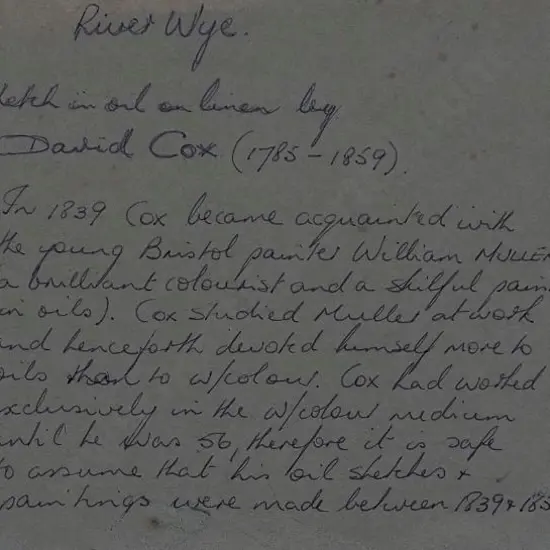 River Wye.
ketch in oil on linen by
David Cox (1785-1859).
In 1839 Cox became acquainted with
the young Bristol painter William MULLER
(a brilliant colourist and a skilful pain
in oils). Cox studied Muller at work
and henceforth devoted himself more to
oils than to w/colour. Cox had worked
xclusively in the w/colour medium
until he was 56, therefore it is safe
to assume that his oil sketches +
paintings were made between 1839 + 185